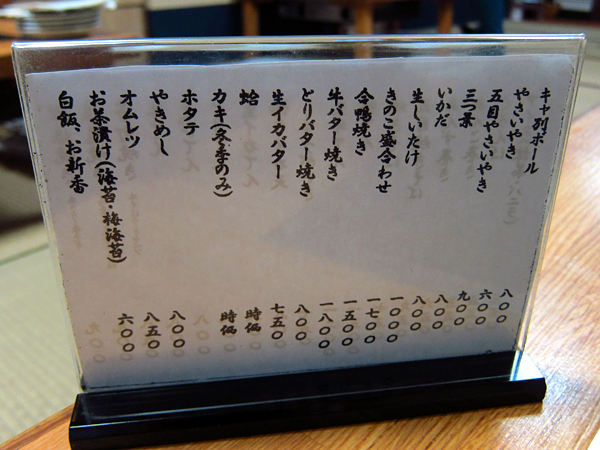 キャ別ボール 八〇〇
やさいやき 六〇〇
五目やさいやき 九〇〇
三つ景 八〇〇
いかだ 八〇〇
生しいたけ 一〇〇〇
きのこ盛合わせ 一七〇〇
合鴨焼き 一五〇〇
牛バター焼き 一八〇〇
とりバター焼き 八〇〇
生イカバター 七五〇
蛤 時価
カキ(冬季のみ) 時価
ホタテ
やきめし 八〇〇
オムレツ 八五〇
お茶漬け(海苔・梅海苔) 六〇〇
白飯、お新香